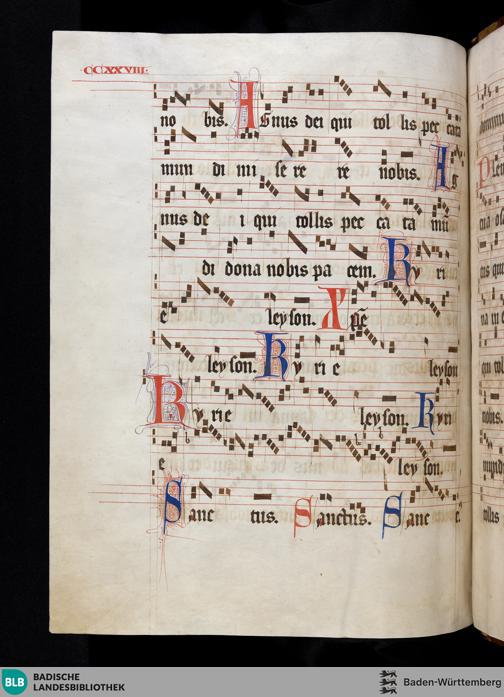 CCXXVIII.
no bis. Agnus dei qui tol lis pec cata
mun di mi se re re nobis. Ag
nus de i qui tollis pec ca ta mū
di dona nobis pa cem. Ky ri
e leyson. Xpe
leyson. Ky ri e leyson
Ky rie leyson. Kyri
e ley son.
Sanc tus. Sanctus. Sanc
BLB BADISCHE
LANDESBIBLIOTHEK
Baden-Württemberg